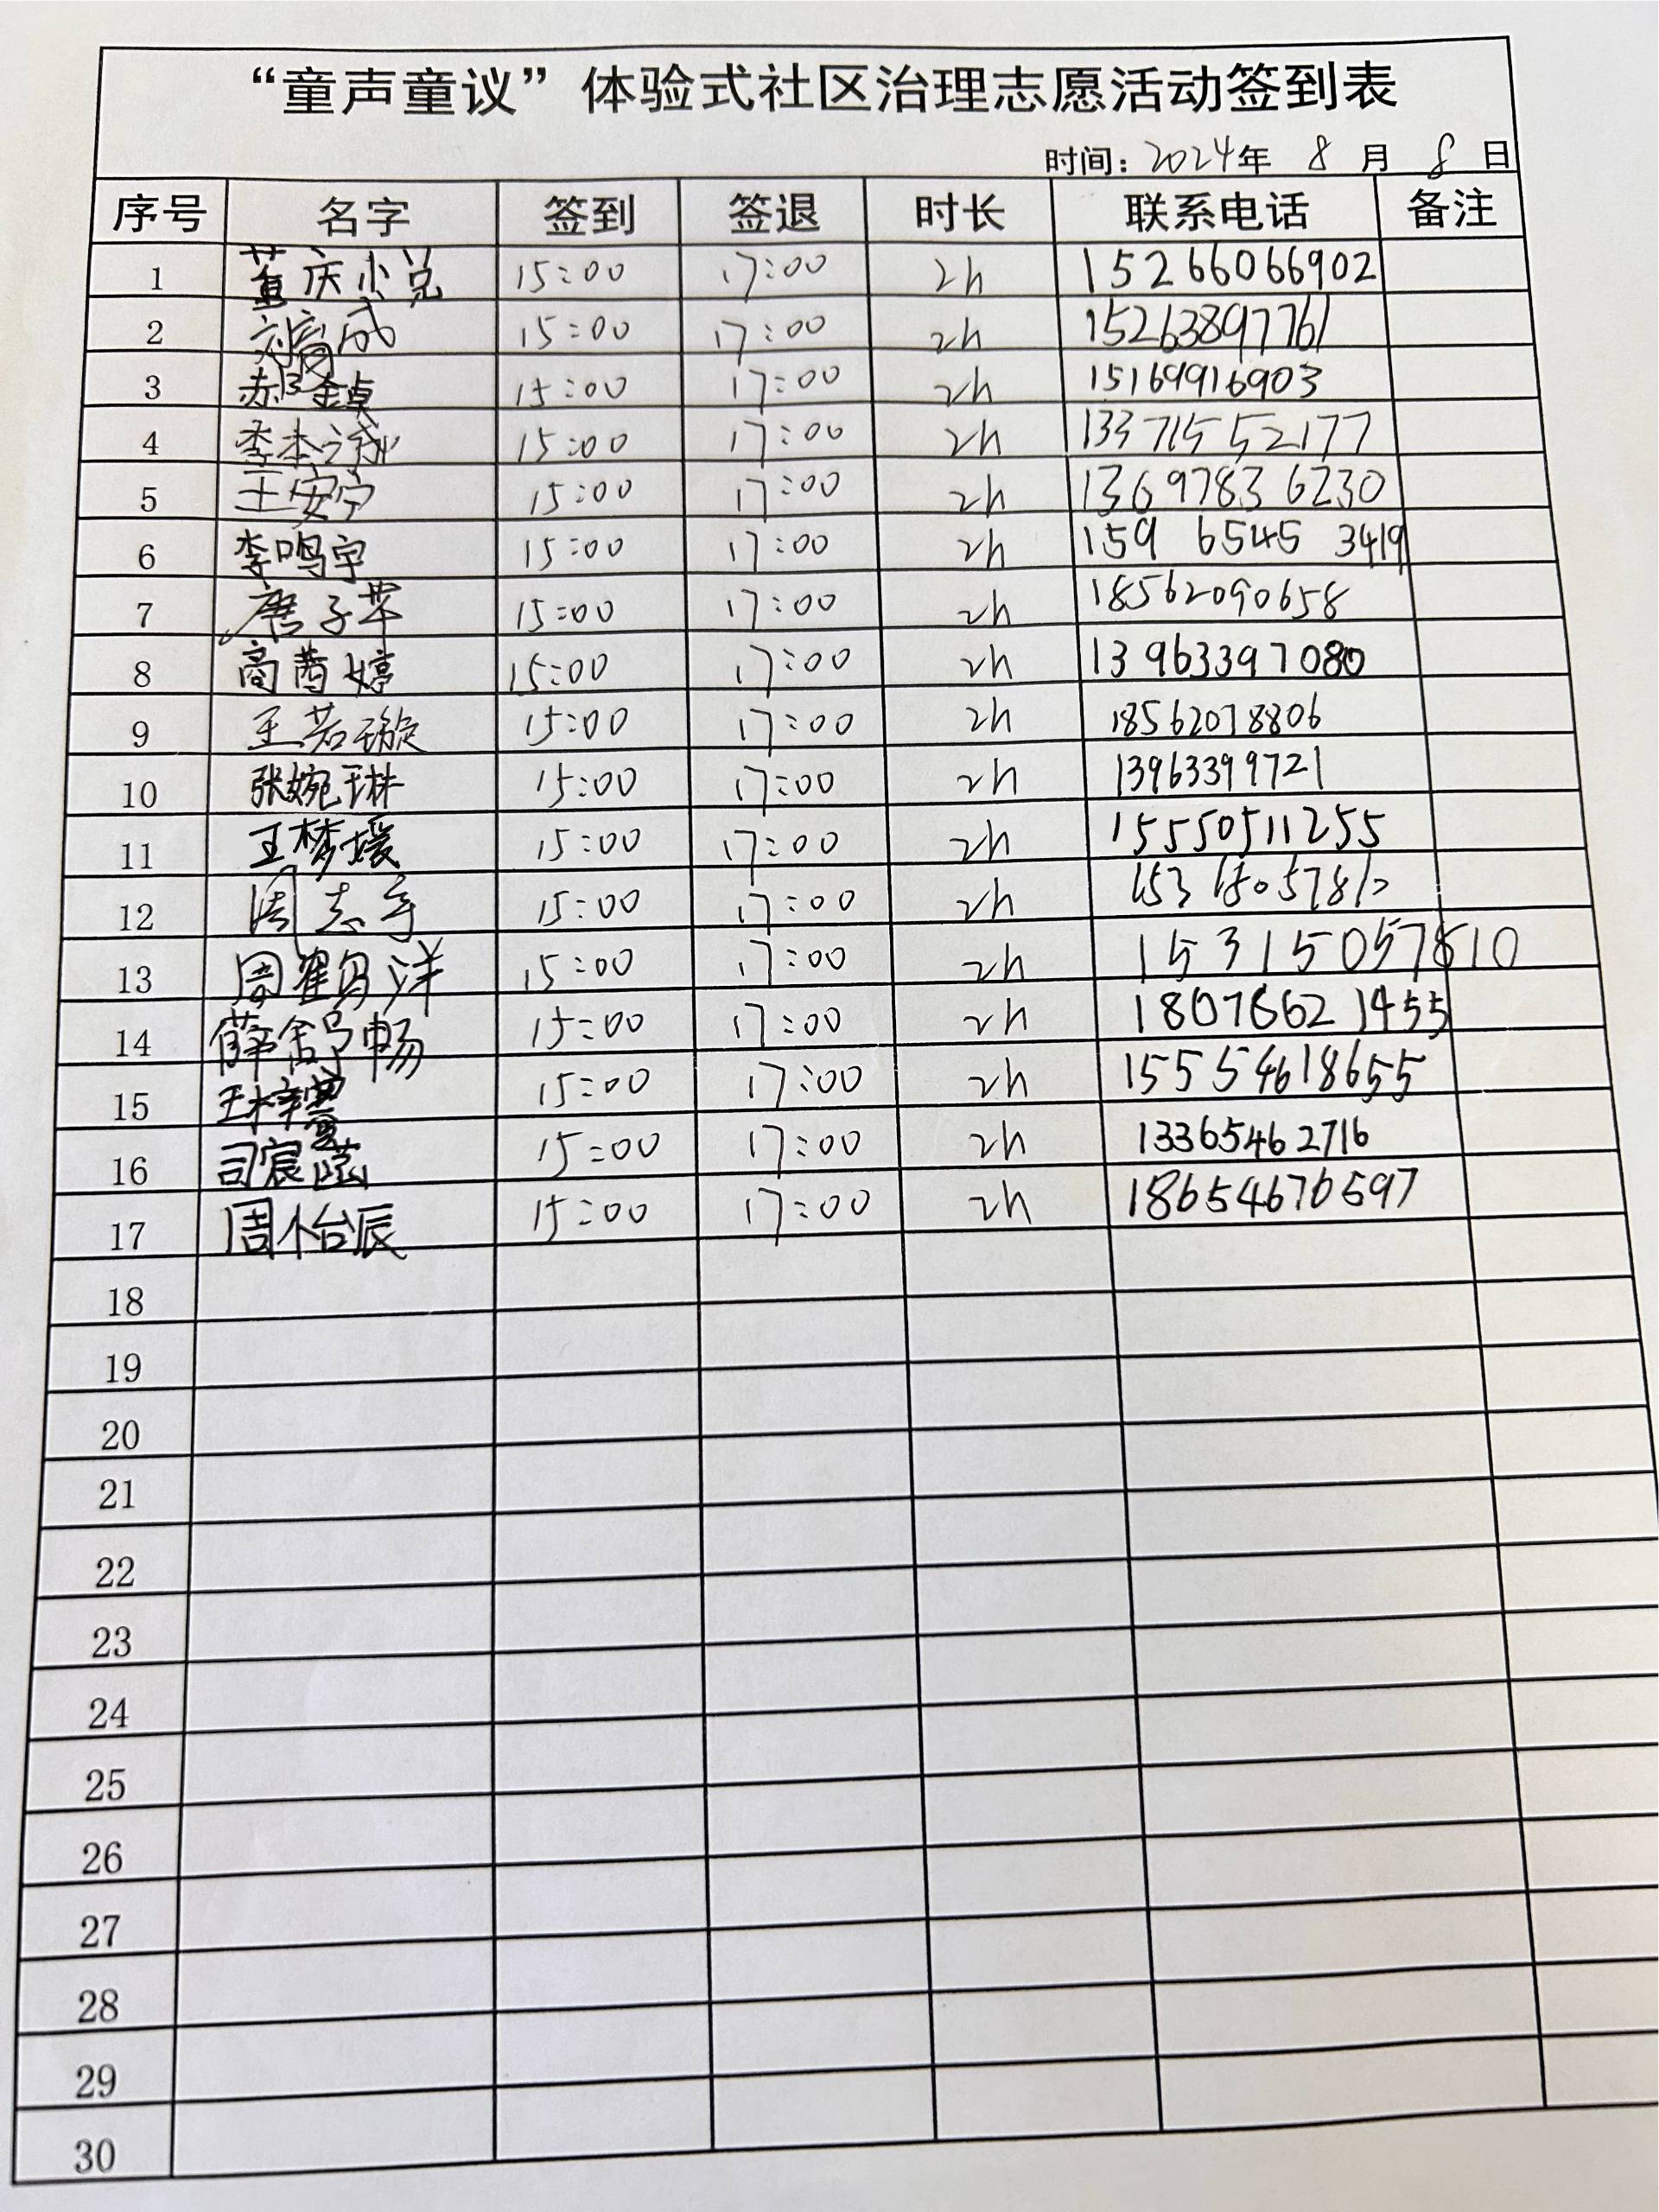 “童声童议”体验式社区治理志愿活动签到表
时间：2024年 8 月 8 日
序号 名字 签到 签退 时长 联系电话 备注
1 董庆小说 15:00 17:00 2h 15266066902
2 刘育成 15:00 17:00 2h 15263897761
3 15:00 17:00 2h 15169916903
4 李本诚 15:00 17:00 2h 13371552177
5 王安宁 15:00 17:00 2h 13697836230
6 李鸣宇 15:00 17:00 2h 159 6545 3419
7 唐子苹 15:00 17:00 2h 18562090658
8 商茜婷 15:00 17:00 2h 13963397080
9 王若璇 15:00 17:00 2h 18562078806
10 张婉琳 15:00 17:00 2h 13963399721
11 王梦媛 15:00 17:00 2h 15550511255
12 周志宇 15:00 17:00 2h 15315057810
13 周鹤洋 15:00 17:00 2h 15315057810
14 薛舒畅 15:00 17:00 2h 18078621455
15 15:00 17:00 2h 15554618655
16 司宸菡 15:00 17:00 2h 13365462716
17 周怡辰 15:00 17:00 2h 18654676597
18
19
20
21
22
23
24
25
26
27
28
29
30